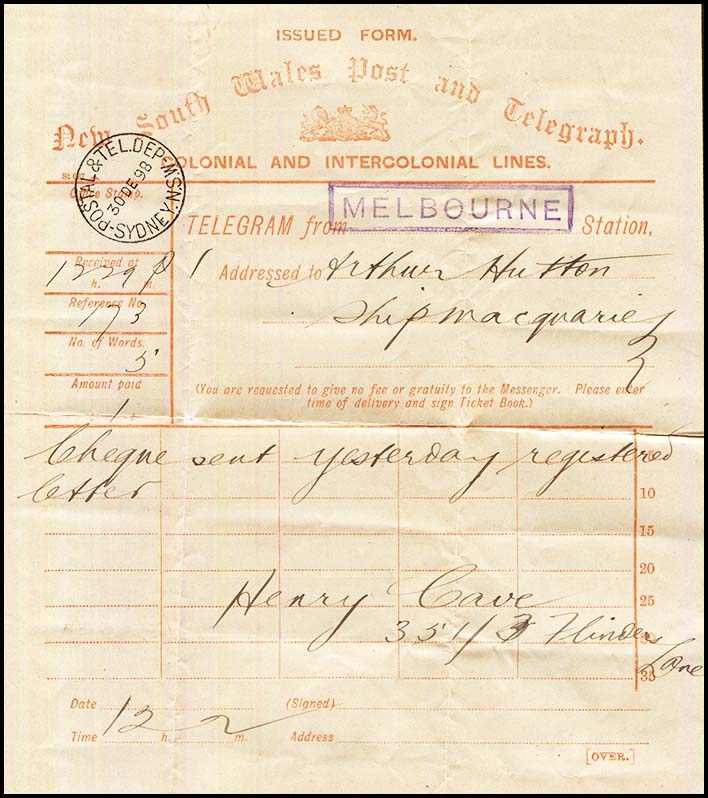 ISSUED FORM.
New South Wales Post and Telegraph.
COLONIAL AND INTERCOLONIAL LINES.
POSTAL & TEL. DEPT N.S.W. SYDNEY
30 DE 98
MELBOURNE
TELEGRAM from Station,
Received at
12 29 P
h. m.
Addressed to Arthur Hutton
Reference No.
173
Ship Macquarie
No. of Words.
5
Amount paid
1
(You are requested to give no fee or gratuity to the Messenger. Please enter
time of delivery and sign Ticket Book.)
Cheque sent yesterday registered
letter
10
15
20
Henry Cave 25
351/3 Flinders
Lane
35
Date (Signed)
12
Time h. m. Address
[OVER.]